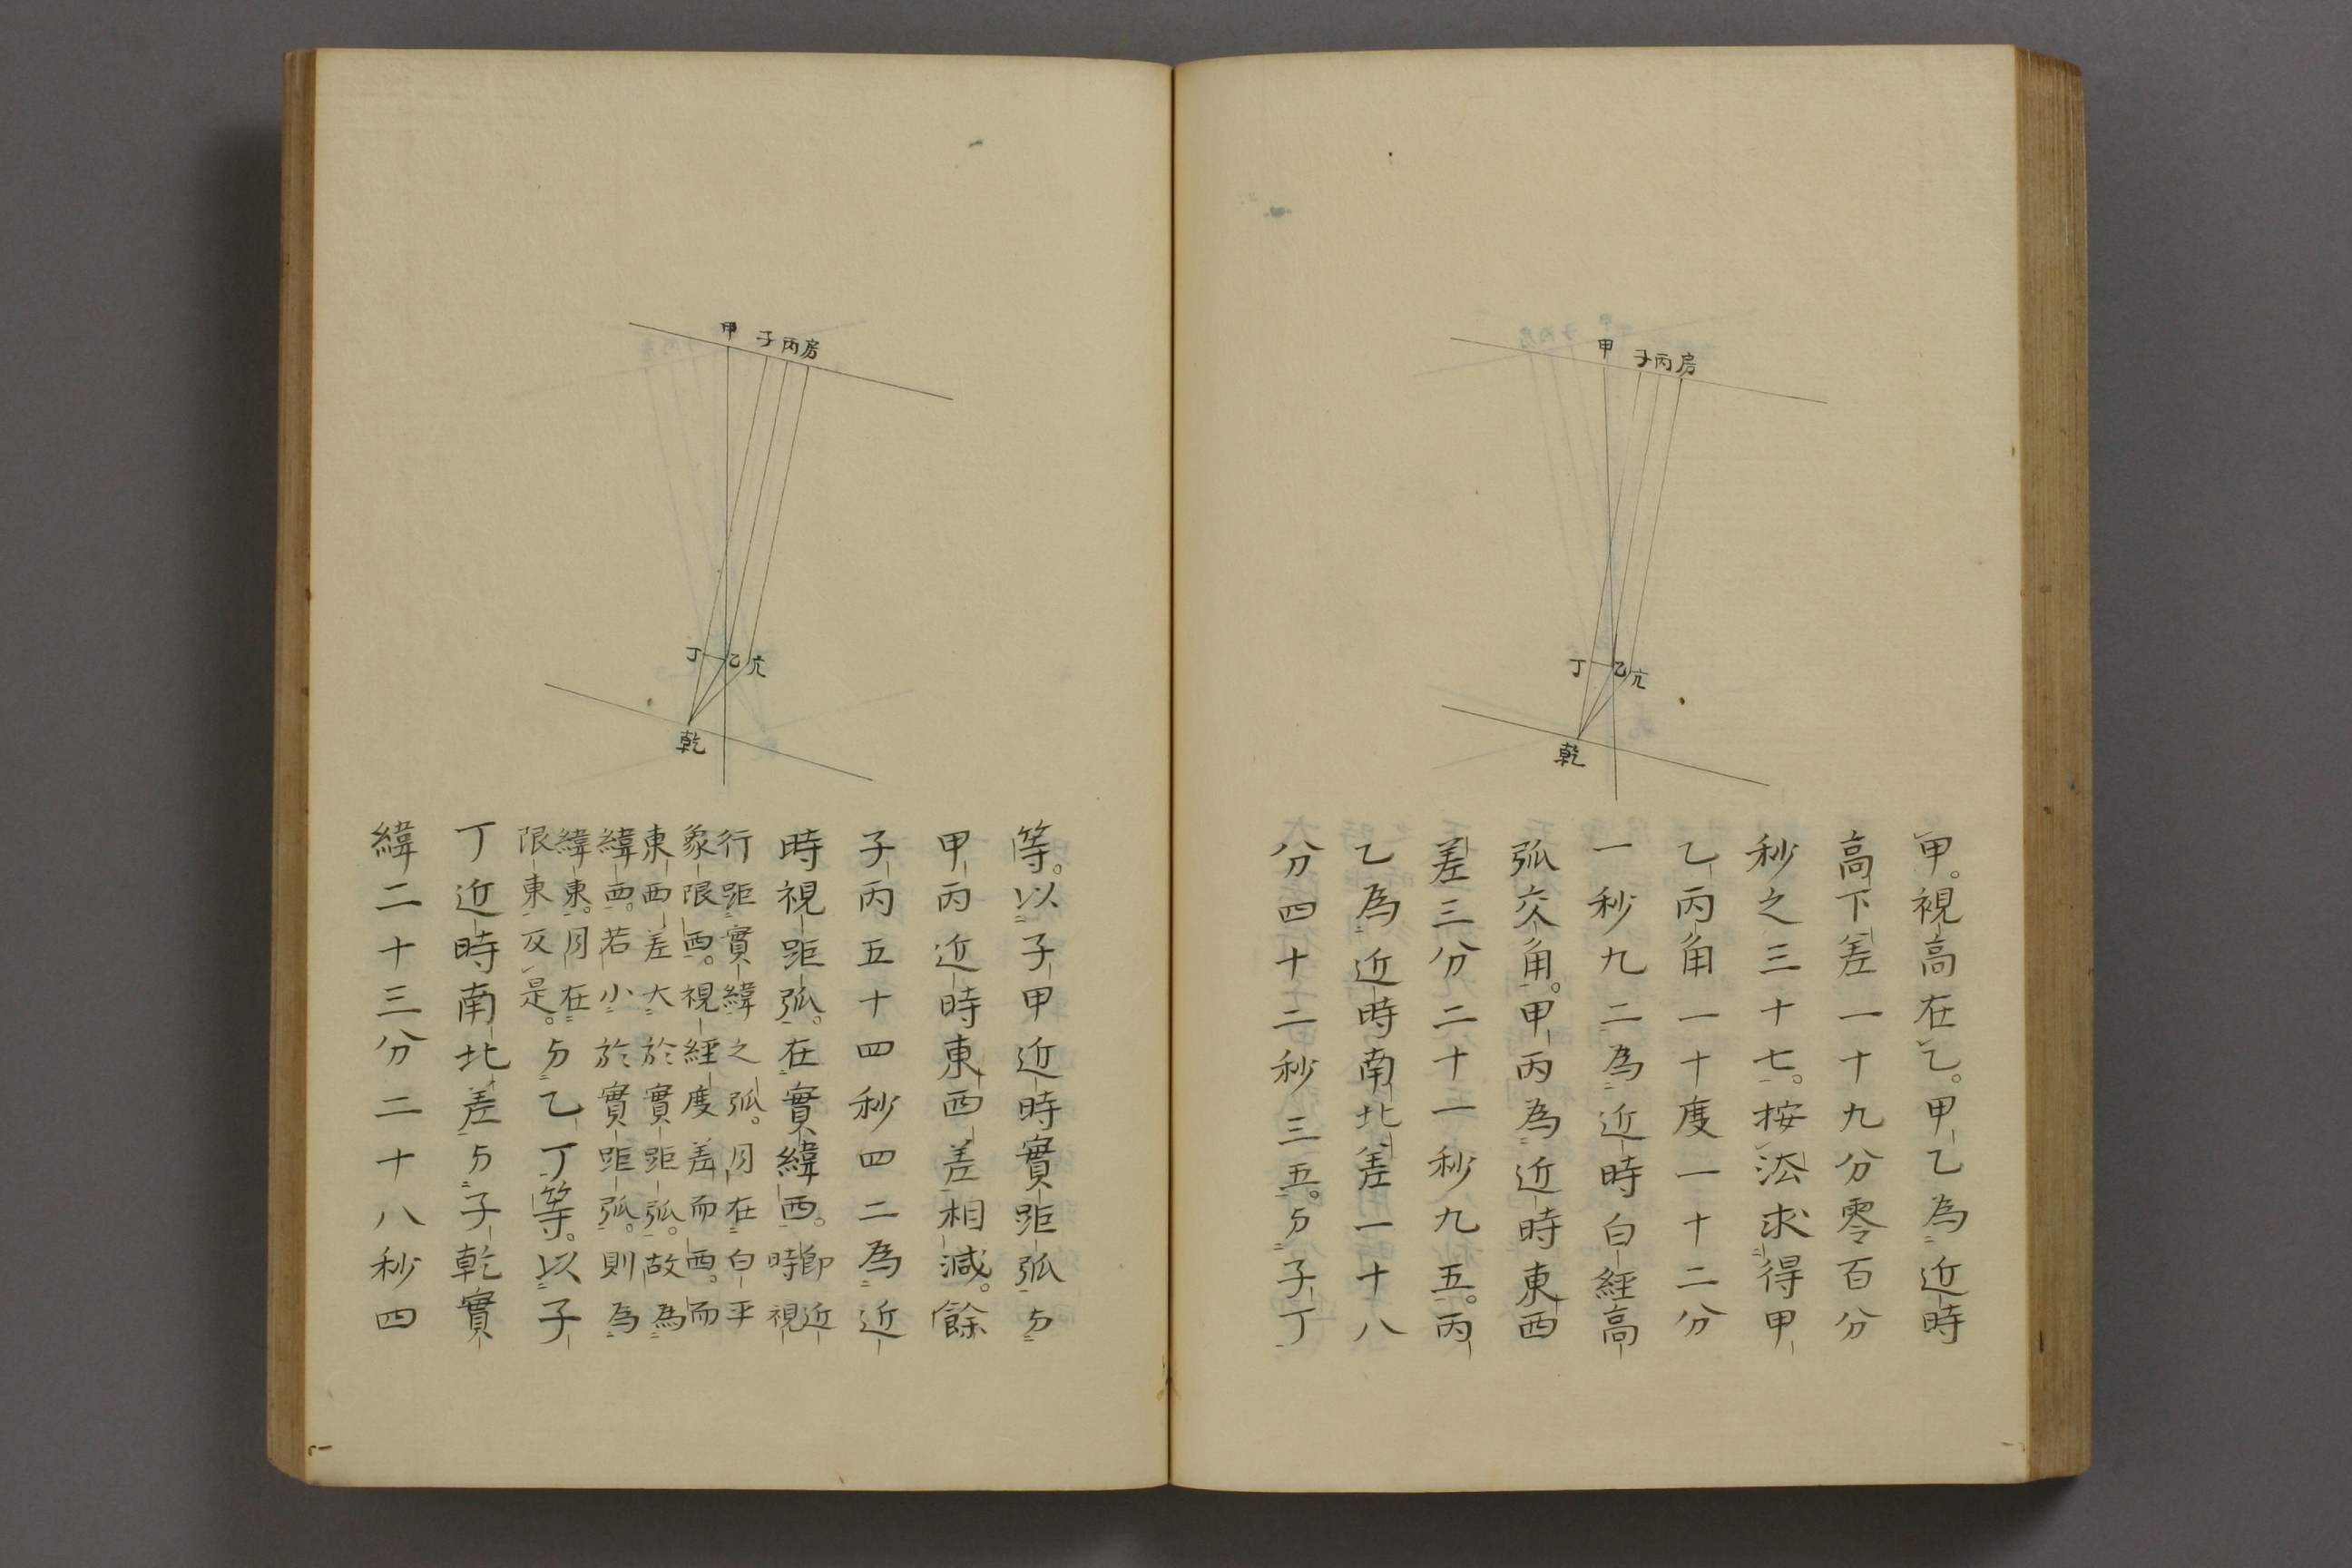 甲 子 丙 房
丁 乙 亢
乾
甲。視高在乙。甲乙為近時
高下差一十九分零百分
秒之三十七。按法求得甲
乙丙角一十度一十二分
一秒九二為近時白經高
弧交角。甲丙為近時東西
差三分二十一秒九五。丙
乙為近時南北差一十八
分四十二秒三五。与子丁
甲 子 丙 房
丁 乙 亢
乾
等。以子甲近時實距弧与
甲丙近時東西差相減。餘
子丙五十四秒四二為近
時視距弧。在實緯西。即近
時視
行距實緯之弧。月在白平
象限西。視經度差而西。而
東西差大於實距弧。故為
緯西。若小於實距弧。則為
緯東。月在
限東反是。与乙丁等。以子
丁近時南北差与子乾實
緯二十三分二十八秒四